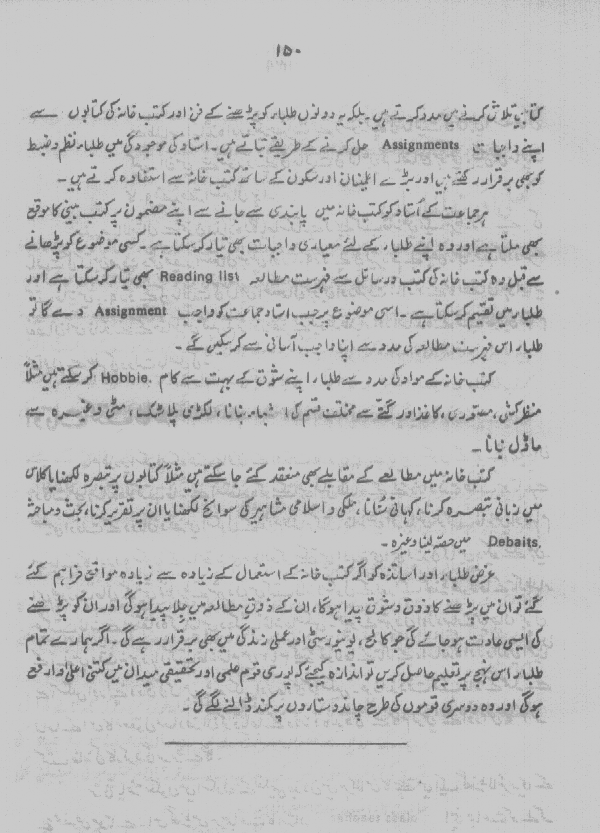 ۱۵۰
کتابیں تلاش کرنے میں مدد کرتے ہیں۔ بلکہ یہ دونوں طلباء کو پڑھنے کے فن اور کتب خانہ کی کتابوں سے
اپنے واجبات Assignments حل کرنے کے طریقے بتاتے ہیں۔ استاد کی موجودگی میں طلباء نظم و ضبط
کو بھی برقرار رکھتے ہیں اور بڑے اطمینان اور سکون کے ساتھ کتب خانہ سے استفادہ کرتے ہیں۔
ہر جماعت کے اُستاد کو کتب خانہ میں پابندی سے جانے سے اپنے مضمون پر کتب بینی کا موقع
بھی ملتا ہے اور وہ اپنے طلباء کے لئے معیاری واجبات بھی تیار کر سکتا ہے۔ کسی موضوع کو پڑھانے
سے قبل وہ کتب خانہ کی کتب و رسائل سے فہرست مطالعہ Reading list بھی تیار کر سکتا ہے اور
طلباء میں تقسیم کر سکتا ہے۔ اسی موضوع پر جب استاد جماعت کو واجب Assignment دے گا تو
طلباء اس فہرست مطالعہ کی مدد سے اپنا واجب آسانی سے کر سکیں گے۔
کتب خانہ کے مواد کی مدد سے طلباء اپنے شوق کے بہت سے کام Hobbie. کر سکتے ہیں مثلاً
منظر کشی، مصوری، کاغذ اور گتّے سے مختلف قسم کی اشیاء بنانا، لکڑی پلاسٹک، مٹی وغیرہ سے
ماڈل بنانا۔
کتب خانہ میں مطالعے کے مقابلے بھی منعقد کئے جا سکتے ہیں مثلاً کتابوں پر تبصرہ لکھنا یا کلاس
میں زبانی تبصرہ کرنا، کہانی سُنانا، ملکی و اسلامی مشاہیر کی سوانح لکھنا یا ان پر تقریر کرنا، بحث و مباحثہ
Debaits. میں حصّہ لینا وغیرہ۔
غرض طلباء اور اساتذہ کو اگر کتب خانہ کے استعمال کے زیادہ سے زیادہ مواقع فراہم کئے
گئے تو ان میں پڑھنے کا ذوق و شوق پیدا ہوگا، ان کے ذوقِ مطالعہ میں جِلا پیدا ہوگی اور ان کو پڑھنے
کی ایسی عادت ہو جائے گی جو کالج، یونیورسٹی اور عملی زندگی میں بھی برقرار رہے گی۔ اگر ہمارے تمام
طلباء اس نہج پر تعلیم حاصل کریں تو اندازہ کیجئے کہ پوری قوم علمی اور تحقیقی میدان میں کتنی اعلیٰ و ارفع
ہوگی اور وہ دوسری قوموں کی طرح چاند و ستاروں پر کمند ڈالنے لگے گی۔